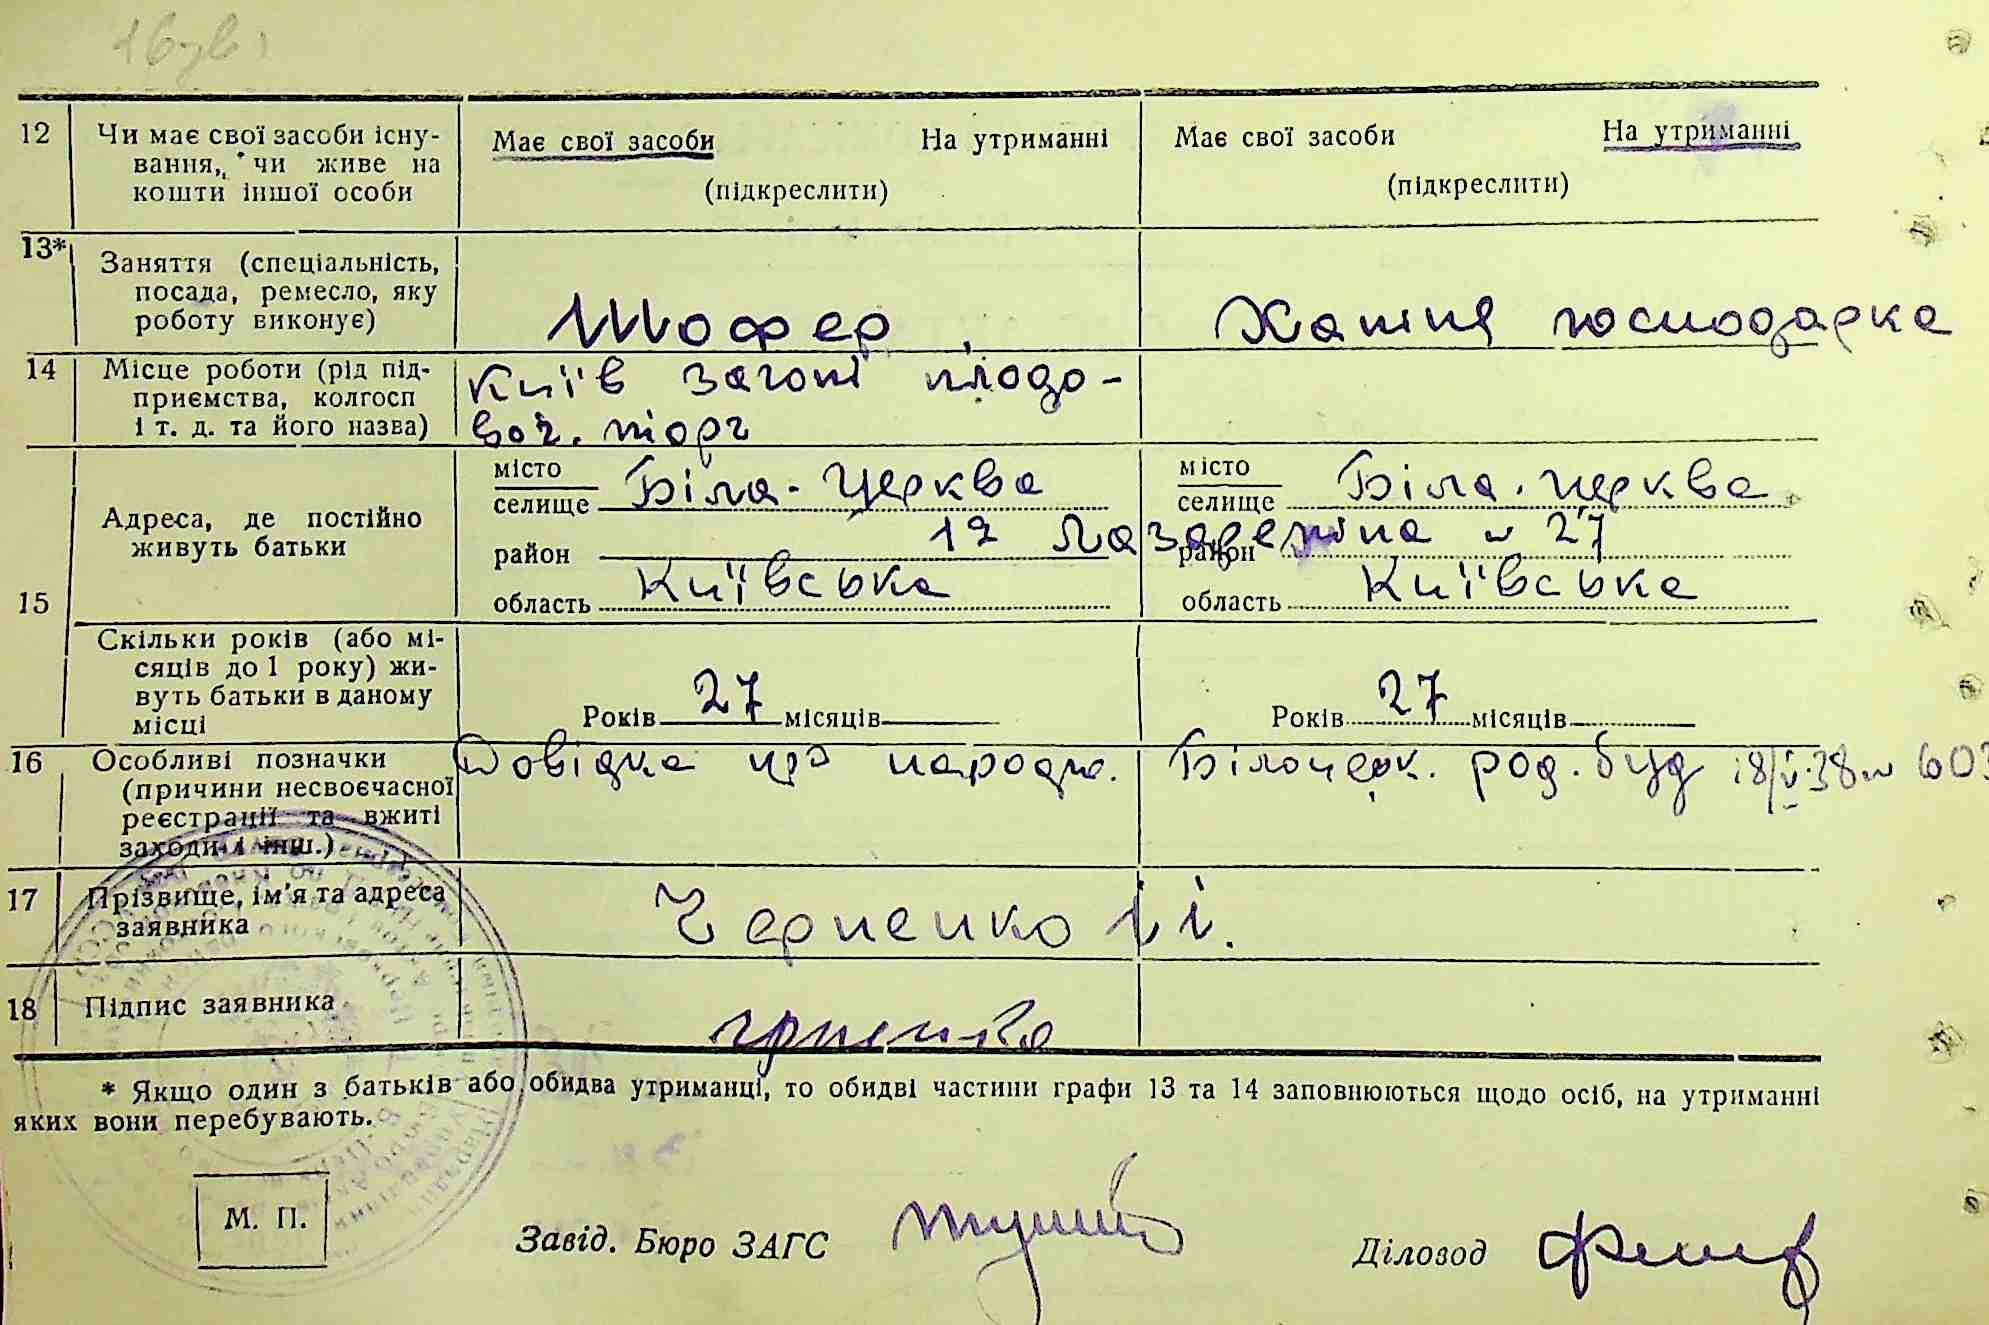 12 Чи має свої засоби існу- Має свої засоби На утриманні Має свої засоби На утриманні
вання, чи живе на
кошти іншої особи (підкреслити) (підкреслити)
13* Заняття (спеціальність,
посада, ремесло, яку
роботу виконує) Шофер Хатня господарка
14 Місце роботи (рід під- Київ загот плодо-
приємства, колгосп
і т. д. та його назва) воч. торг
місто Біла-Церква місто Біла-Церква
селище селище
Адреса, де постійно
живуть батьки
район 12 район № 27
15 область Київська область Київська
Скільки років (або мі-
сяців до 1 року) жи-
вуть батьки в даному
місці Років 27 місяців Років 27 місяців
16 Особливі позначки Довідка про народж. Білоцерк. род. буд 18/V-38 № 603
(причини несвоєчасної
реєстрації та вжиті
заходи і інш.)
17 Прізвище, ім'я та адреса
заявника Черненко І. І.
18 Підпис заявника
* Якщо один з батьків або обидва утриманці, то обидві частини графи 13 та 14 заповнюються щодо осіб, на утриманні
яких вони перебувають.
М. П.
Завід. Бюро ЗАГС Діловод